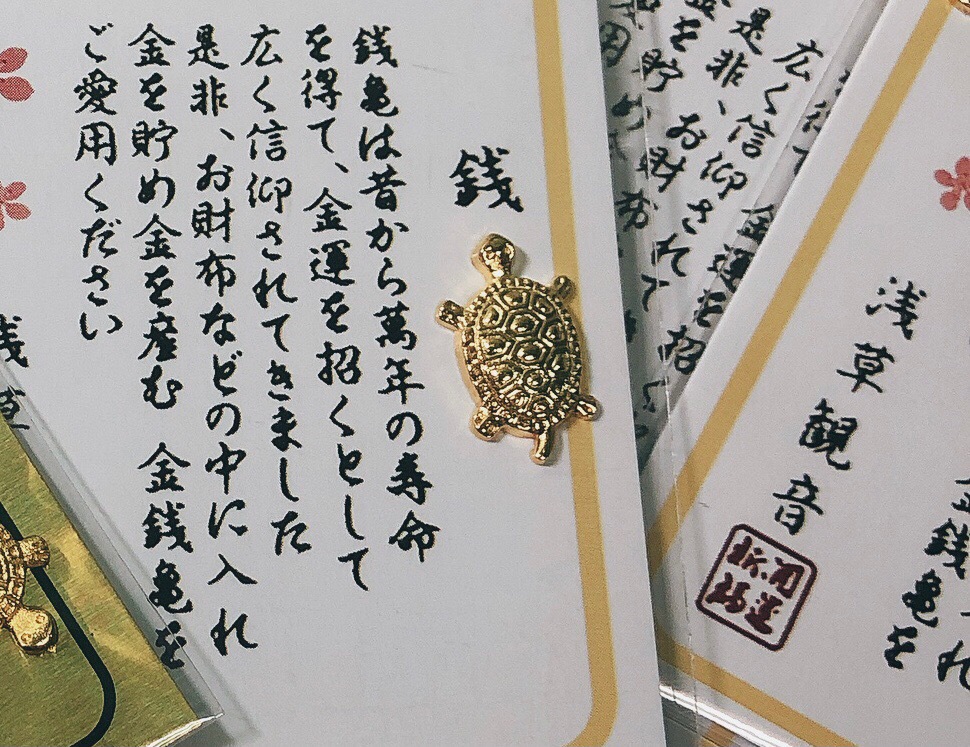 銭
銭亀は昔から萬年の寿命
を得て、金運を招くとして
広く信仰されてきました
是非、お財布などの中に入れ
金を貯め金を産む 金銭亀を
ご愛用ください
浅草観音
開運
祈福
広く信仰されて
是非、お財布
金を貯め
金運を招く
金銭亀を
れ